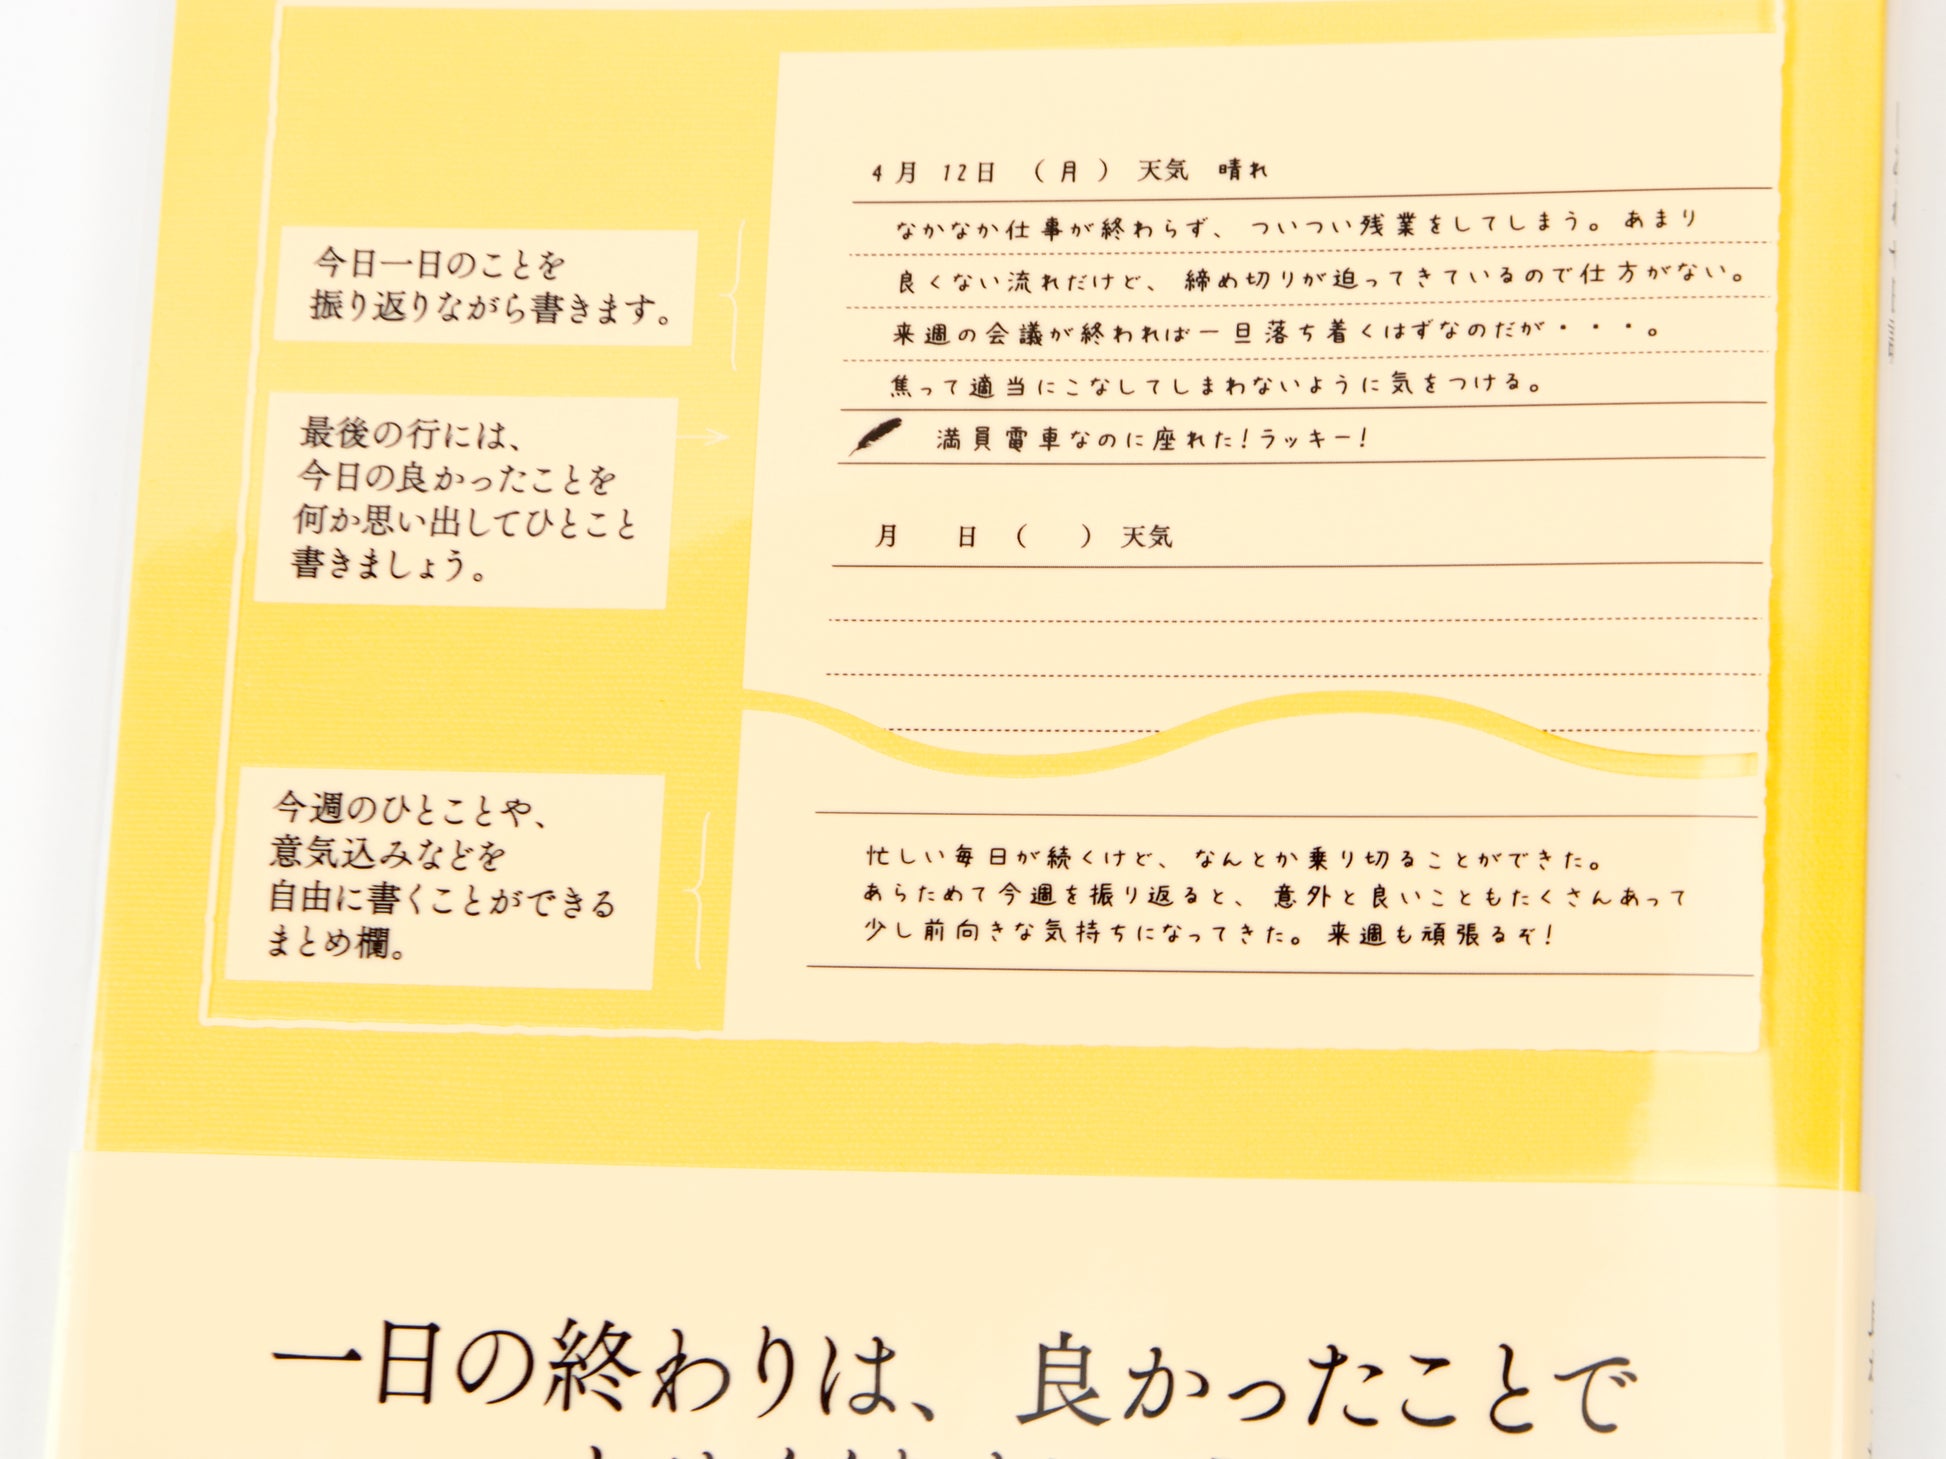 4月 12日 （月） 天気 晴れ
なかなか仕事が終わらず、ついつい残業をしてしまう。あまり
良くない流れだけど、締め切りが迫ってきているので仕方がない。
来週の会議が終われば一旦落ち着くはずなのだが・・・。
焦って適当にこなしてしまわないように気をつける。
満員電車なのに座れた！ラッキー！
今日一日のことを
振り返りながら書きます。
最後の行には、
今日の良かったことを
何か思い出してひとこと
書きましょう。
月 日 （ ） 天気
今週のひとことや、
意気込みなどを
自由に書くことができる
まとめ欄。
忙しい毎日が続くけど、なんとか乗り切ることができた。
あらためて今週を振り返ると、意外と良いこともたくさんあって
少し前向きな気持ちになってきた。来週も頑張るぞ！
一日の終わりは、良かったことで